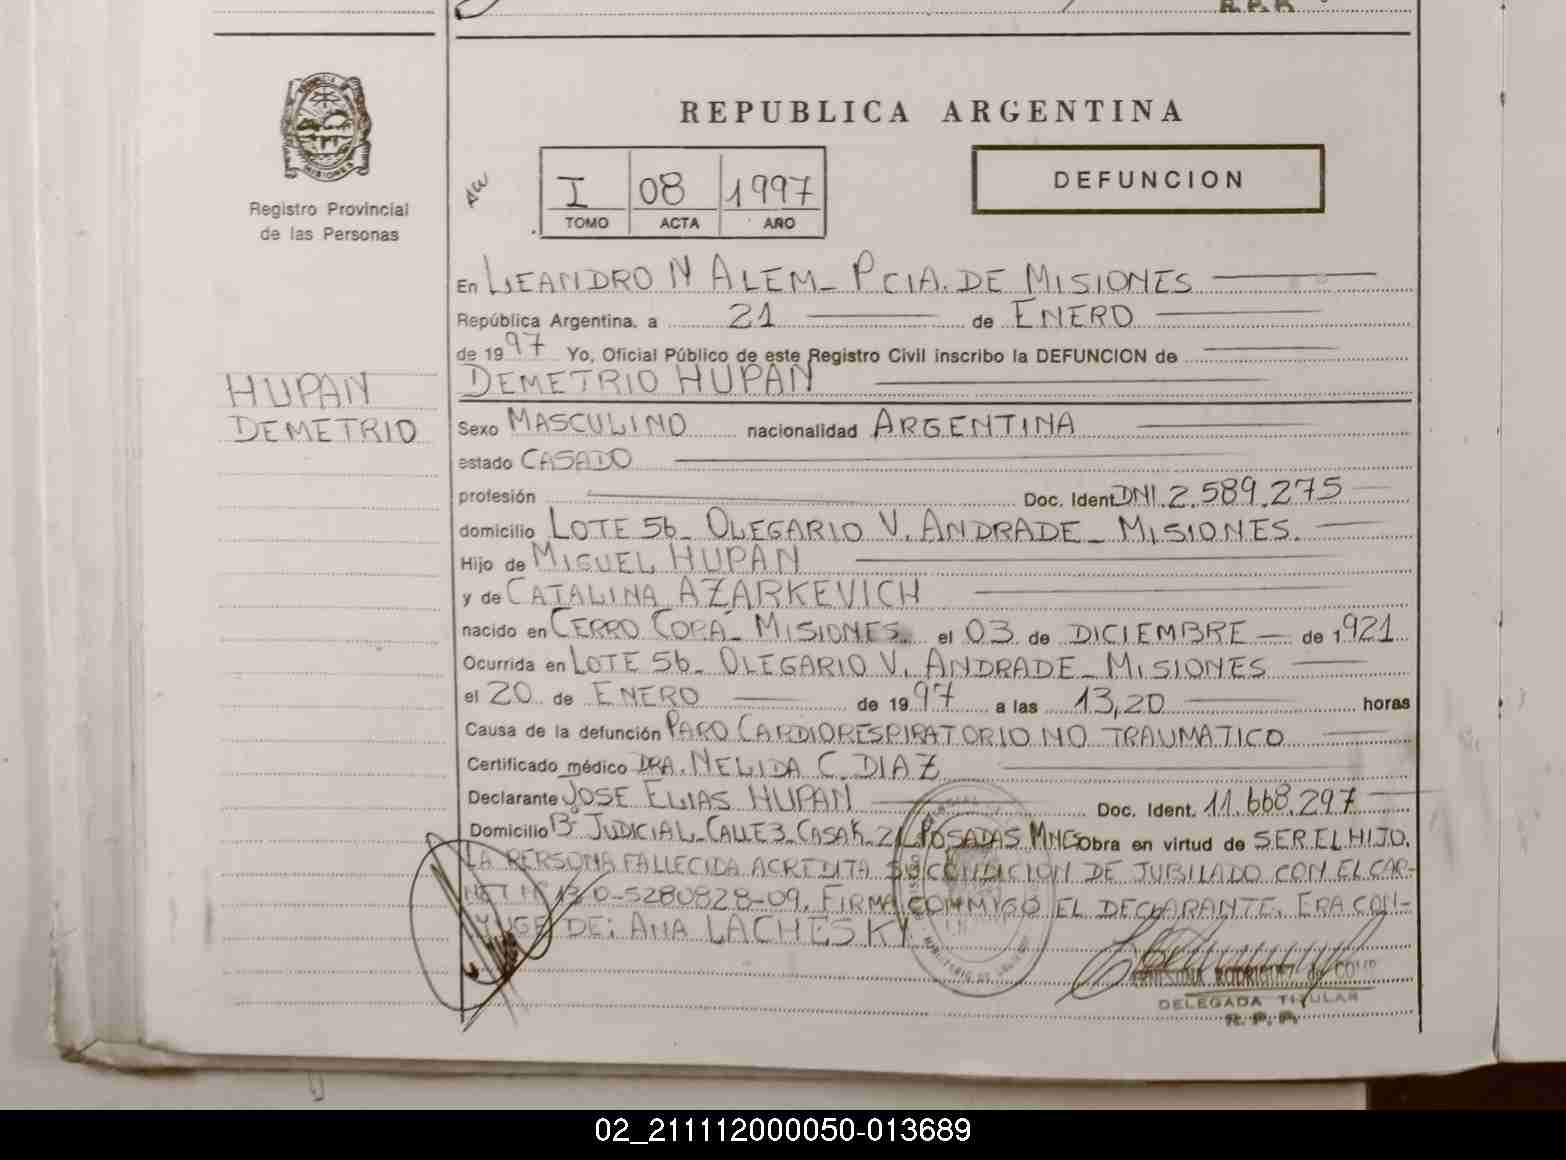 R. P. P.
PROVINCIA DE
MISIONES
Registro Provincial
de las Personas
HUPAN
DEMETRIO
REPUBLICA ARGENTINA
I 08 1997
TOMO ACTA AÑO
DEFUNCION
En LEANDRO N ALEM_ PCIA. DE MISIONES
República Argentina, a 21 de ENERO
de 1997 Yo, Oficial Público de este Registro Civil inscribo la DEFUNCION de
DEMETRIO HUPAN
Sexo MASCULINO nacionalidad ARGENTINA
estado CASADO
profesión Doc. Ident. DNI. 2.589.275
domicilio LOTE 56_ OLEGARIO V. ANDRADE_ MISIONES.
Hijo de MIGUEL HUPAN
y de CATALINA AZARKEVICH
nacido en CERRO CORA_ MISIONES. el 03 de DICIEMBRE de 1921
Ocurrida en LOTE 56_ OLEGARIO V. ANDRADE_ MISIONES
el 20 de ENERO de 1997 a las 13,20 horas
Causa de la defunción PARO CARDIORESPIRATORIO NO TRAUMATICO
Certificado médico DRA. NELIDA C. DIAZ
Declarante JOSE ELIAS HUPAN Doc. Ident. 11.668.297
Domicilio Bº JUDICIAL_CALLE 3_CASA K_ POSADAS MNES Obra en virtud de SER EL HIJO.
LA PERSONA FALLECIDA ACREDITA SU CONDICION DE JUBILADO CON EL CAR-
NET Nº 0-5280828-09. FIRMA CONMIGO EL DECLARANTE. ERA CON-
YUGE DE: ANA LACHESKY
RODRIGUEZ de
DELEGADA TITULAR
R. P. P.
02_211112000050-013689